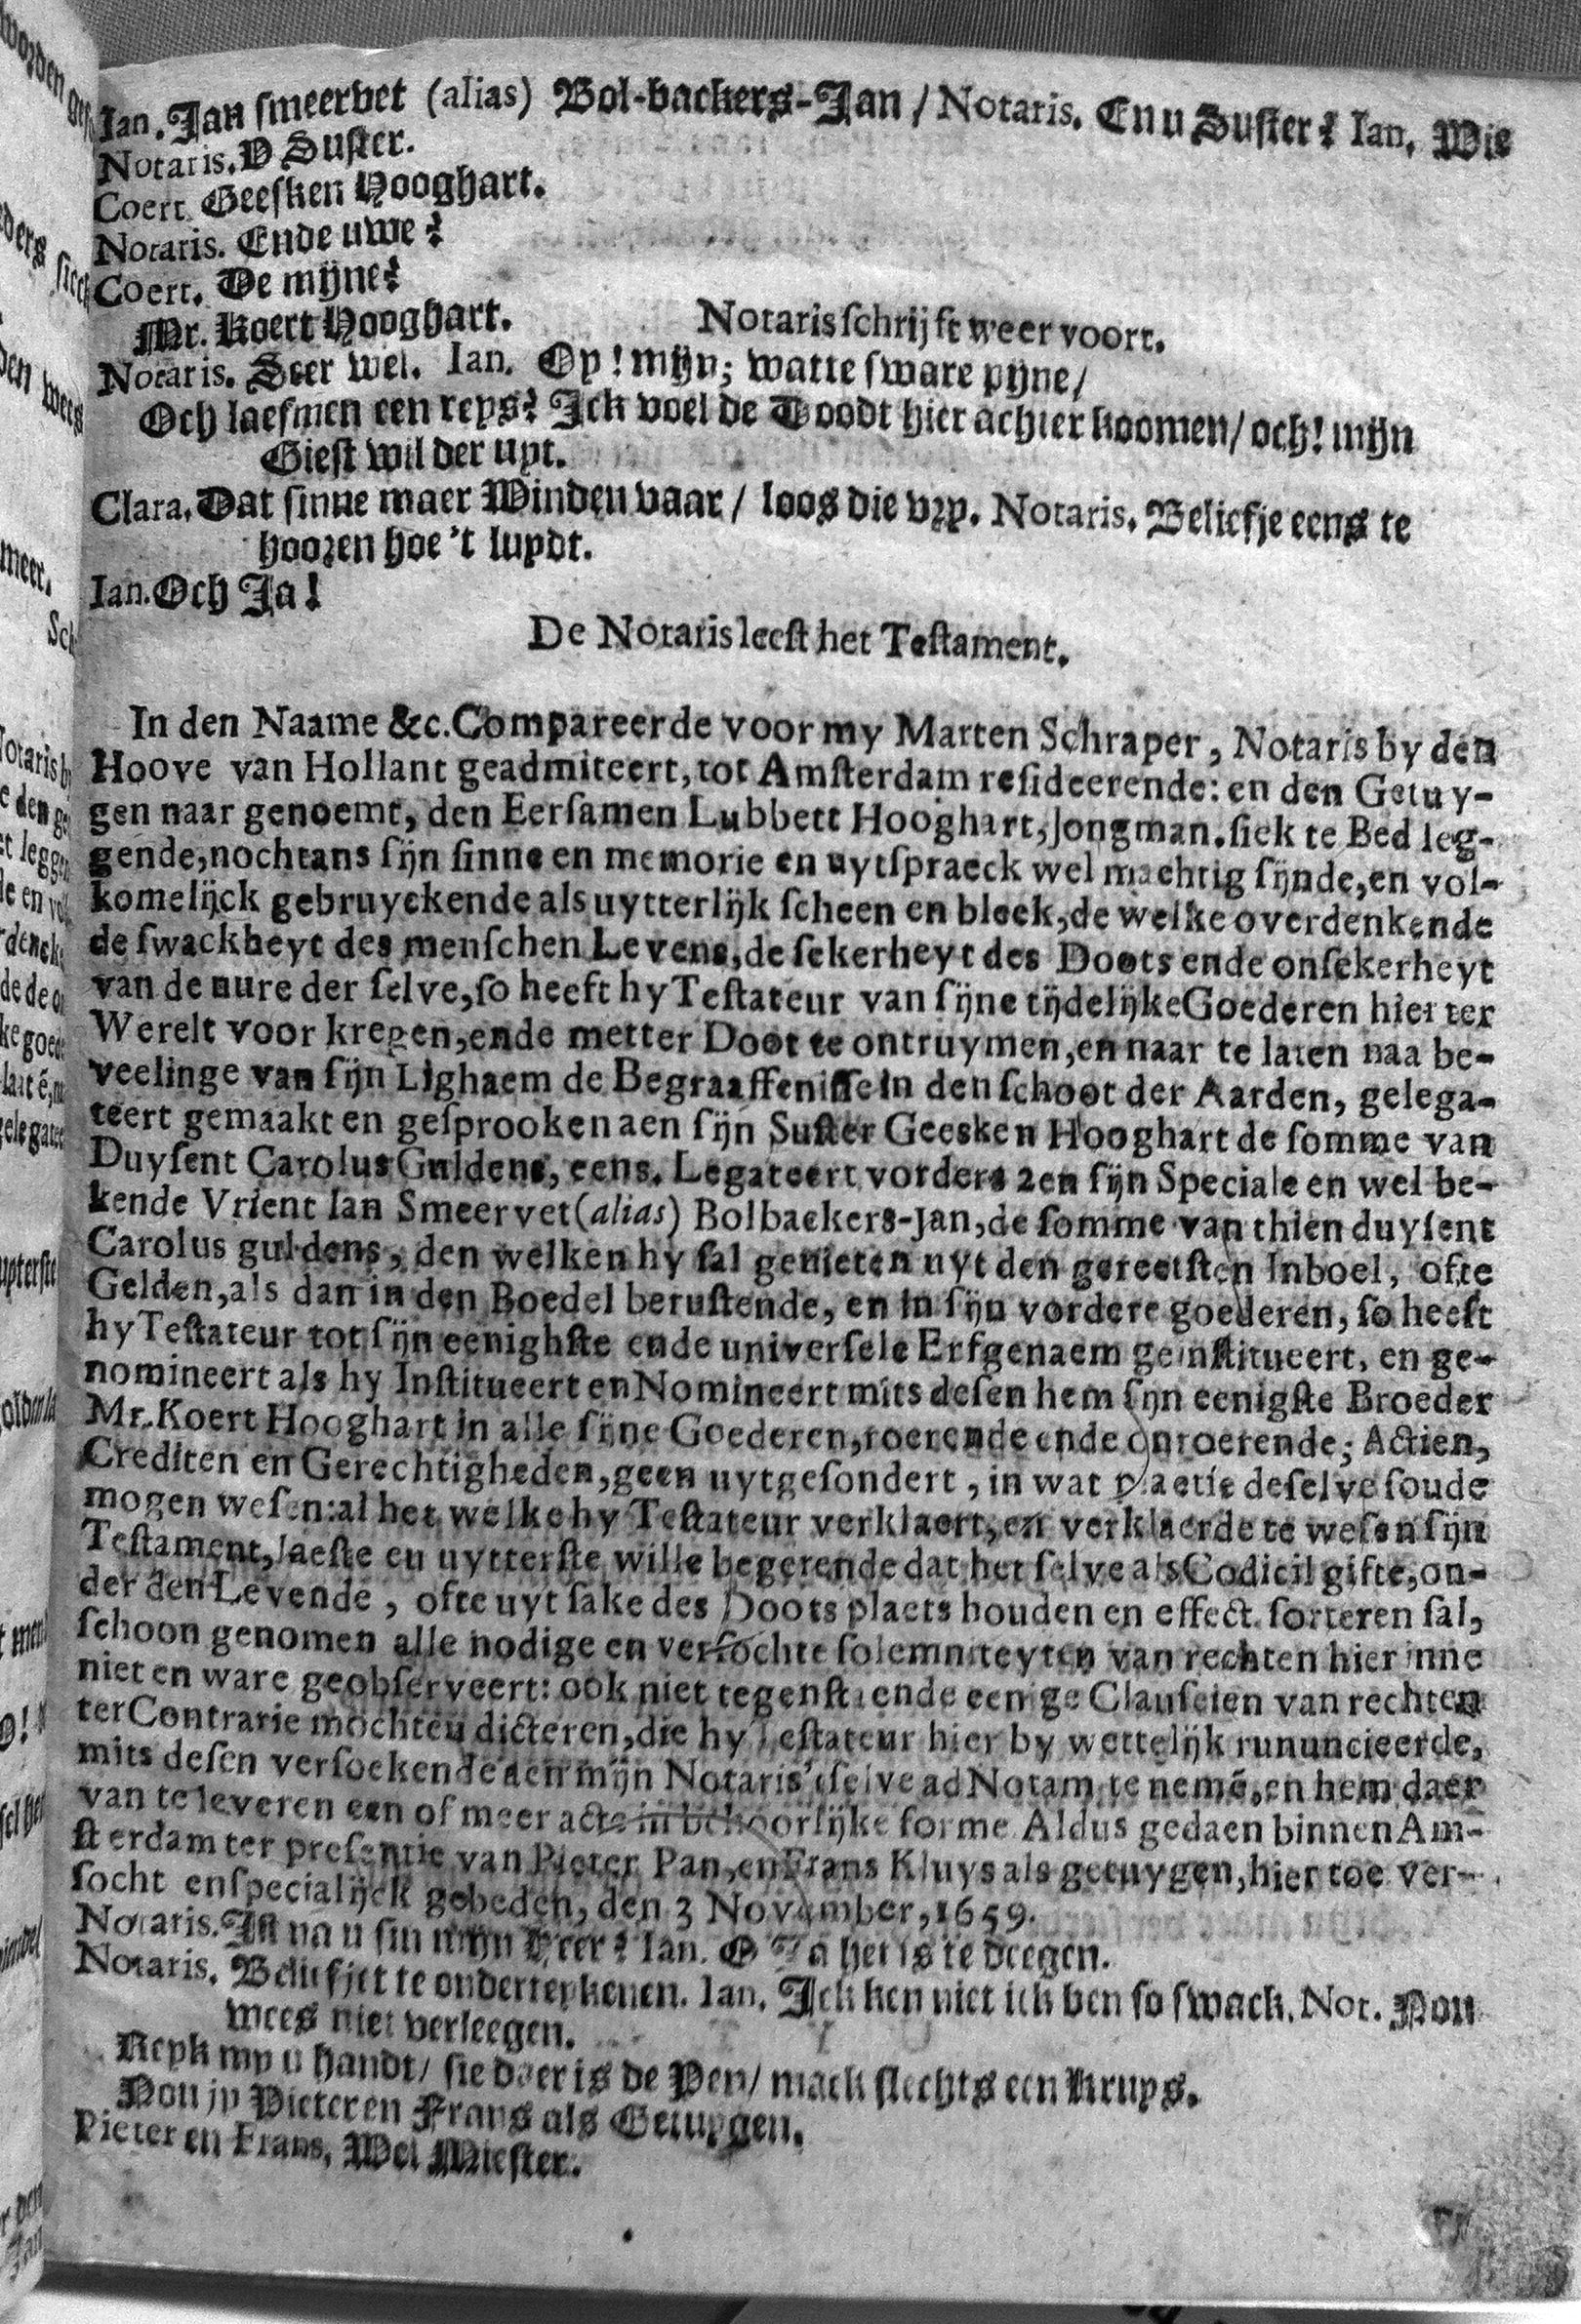 Ian. Jan smeervet (alias) Bol-backers-Jan / Notaris. En u Suster? Ian. Wie
Notaris. U Suster.
Coert. Geesken Hooghart.
Notaris. Ende uwe?
Coert. De mijne?
Mr. Koert Hooghart. Notaris schrijft weer voort.
Notaris. Seer wel. Ian. Oy! mijn; watte sware pyne /
Och laesmen een reys? Ick voel de Doodt hier achter koomen / och! mijn
Giest wil der uyt.
Clara. Dat sinne maer Winden vaar / loos die vry. Notaris. Beliefje eens te
hooren hoe 't luydt.
Ian. Och Ja!
De Notaris leest het Testament.
In den Naame &c. Compareerde voor my Marten Schraper, Notaris by den
Hoove van Hollant geadmiteert, tot Amsterdam resideerende: en den Getuy-
gen naar genoemt, den Eersamen Lubbett Hooghart, Jongman. siek te Bed leg-
gende, nochtans sijn sinne en memorie en uytspraeck wel machtig sijnde, en vol-
komelijck gebruyckende als uytterlijk scheen en bleek, de welke overdenkende
de swackheyt des menschen Levens, de sekerheyt des Doots ende onsekerheyt
van de uure der selve, so heeft hy Testateur van sijne tijdelijke Goederen hier ter
Werelt voor kregen, ende metter Doot te ontruymen, en naar te laten naa be-
veelinge van sijn Lighaem de Begraaffenisse in den schoot der Aarden, gelega-
teert gemaakt en gesprooken aen sijn Suster Geesken Hooghart de somme van
Duysent Carolus Guldens, eens. Legateert vorders aen sijn Speciale en wel be-
kende Vrient Ian Smeervet (alias) Bolbackers-Jan, de somme van thien duysent
Carolus guldens, den welken hy sal genieten uyt den gereetsten Inboel, ofte
Gelden, als dan in den Boedel berustende, en in sijn vordere goederen, so heeft
hy Testateur tot sijn eenighste ende universele Erfgenaem geinstitueert, en ge-
nomineert als hy Institueert en Nomineert mits desen hem sijn eenigste Broeder
Mr. Koert Hooghart in alle sijne Goederen, roerende ende onroerende; Actien,
Crediten en Gerechtigheden, geen uytgesondert, in wat plaetse deselve soude
mogen wesen: al het welke hy Testateur verklaert, en verklaerde te wesen sijn
Testament, laeste en uytterste wille begerende dat het selve als Codicil gifte, on-
der den Levende, ofte uyt sake des Doots plaets houden en effect sorteren sal,
schoon genomen alle nodige en versochte solemniteyten van rechten hier inne
niet en ware geobserveert: ook niet tegenstaende eenige Clausulen van rechten
ter Contrarie mochten dicteren, die hy Testateur hier by wettelijk rununcieerde,
mits desen versoekende aen mijn Notaris 't selve ad Notam te nemē, en hem daer
van te leveren een of meer acte in behoorlijke forme Aldus gedaen binnen Am-
sterdam ter presentie van Pieter Pan, en Frans Kluys als getuygen, hier toe ver-
socht en specialijck gebeden, den 3 November, 1659.
Notaris. Ist na u sin mijn Heer? Ian. O Ja het is te deegen.
Notaris. Beliefjet te onderteykenen. Ian. Ick ken niet ick ben so swack. Not. Nou
wees niet verleegen.
Reyk my u handt / sie daer is de Pen / maek slechts een Kruys.
Nou jy Pieter en Frans als Getuygen.
Pieter en Frans. Wel Miester.